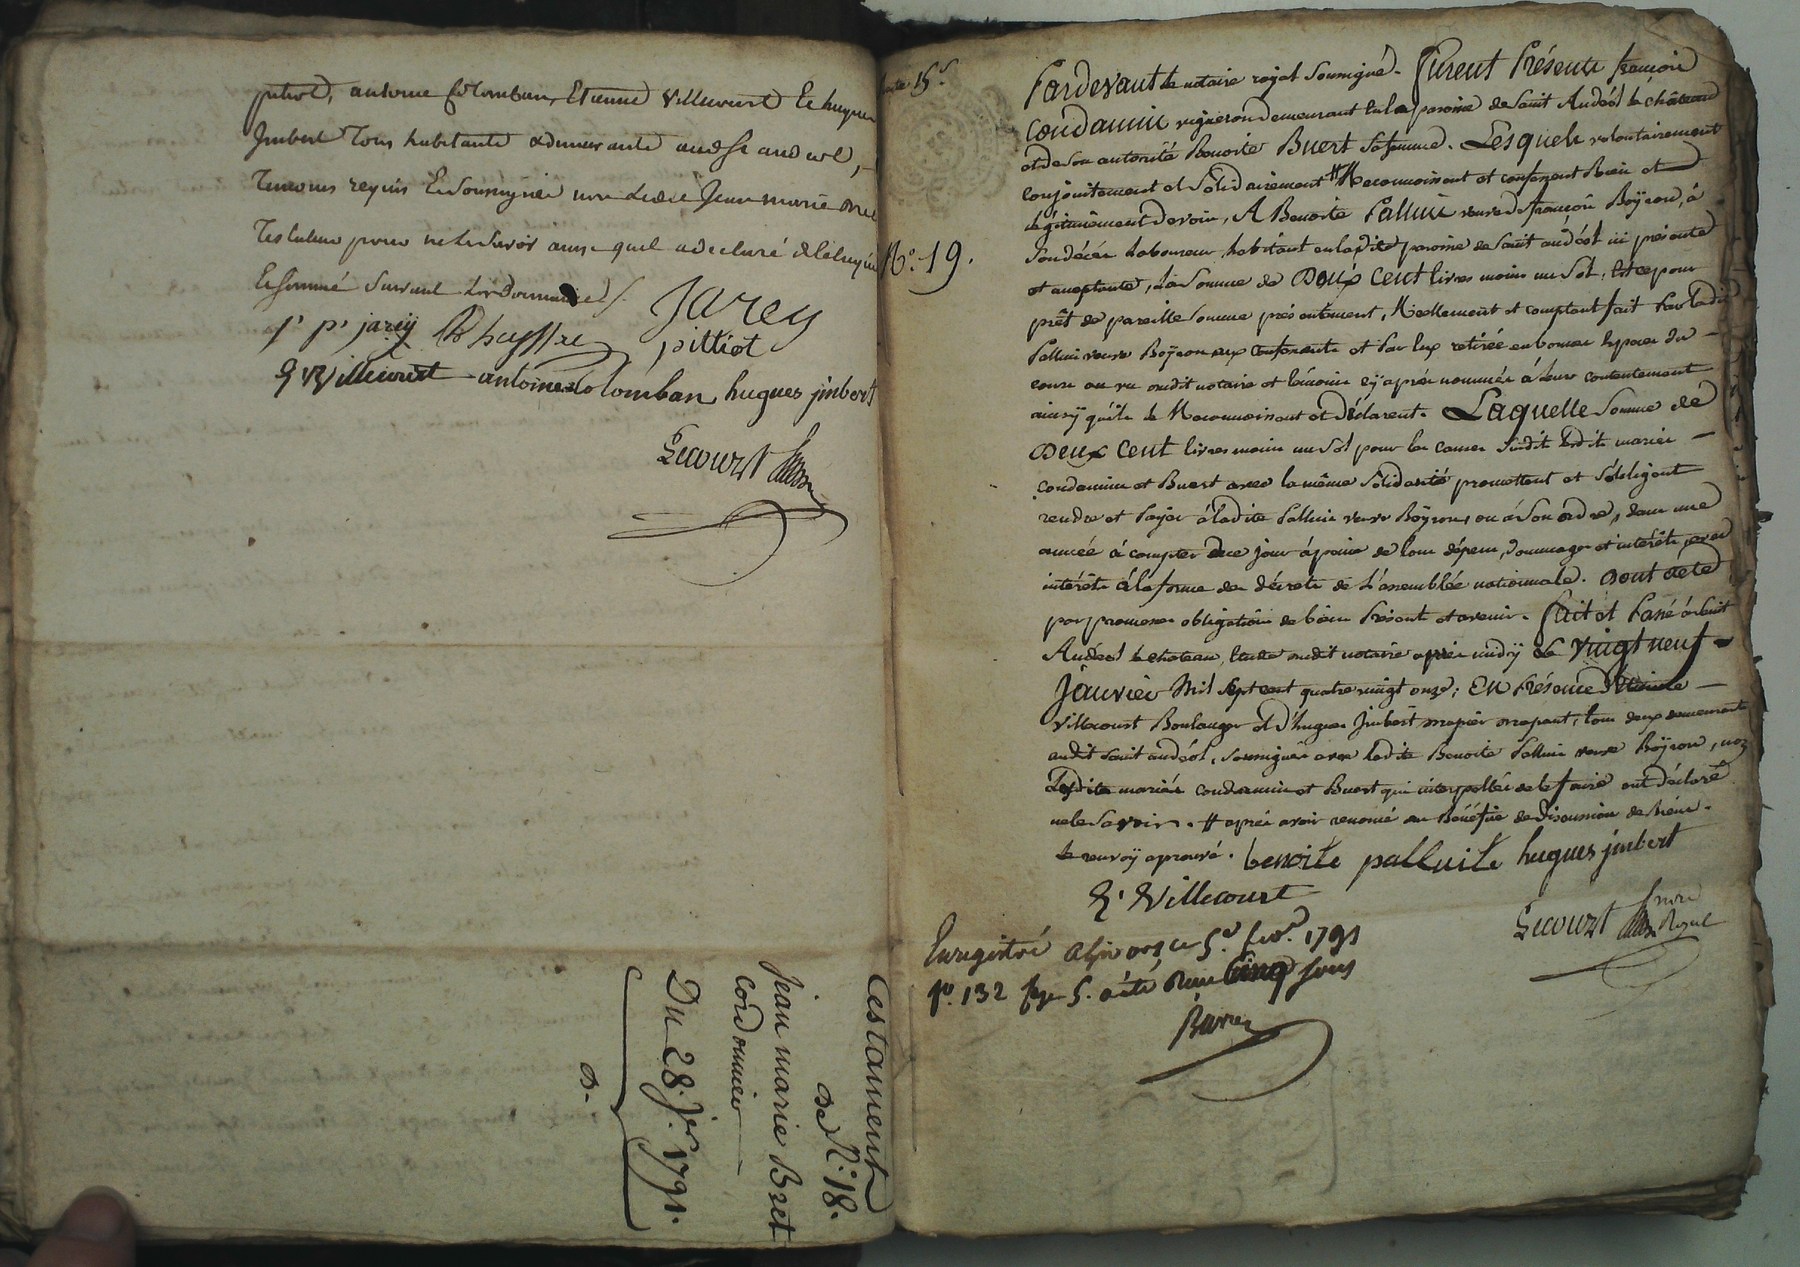 pitiot, antoine Colomban, Etienne Villecourt et hugues
Jmbert tous habitants & demeurants aud. st andeol,
temoins requis et soussignés non ledit Jean marie Bret
testateur pour ne le savoir ainsi quil a declaré de ce enquis
et sommé suivant l'ordonnance
Jarey
j' p' jarey pittiot
E Villecourt antoine colomban hugues jmbert
Lecourt
Testament
de N.° 18.
Jean marie Bret
Cordonnier
Du 28. Jer. 1791.
D.
15.s
N.° 19.
Pardevant le notaire royal soussigné. furent Présents francois
Condamin vigneron demeurant en la paroisse de saint Andéol le château
et de son autorité Benoite Buert sa femme. Lesquels volontairement
conjointement et solidairement # Reconnoissent et confessent bien et
légitimêment devoir, A Benoite Palluit veuve de francois Boÿron, à
son décés laboureur, habitant en ladite paroisse de saint andéol ici présente
et acceptante, La somme de Deux Cent livres moins un sol, Et ce pour
prêt de pareille somme présentement, Réellement et comptant fait Par ladite
Palluit veuve Boÿron aux confessants et Par Eux retirée en bonnes Espèces du
cours au vu dudit notaire et témoins cÿ après nommés à leur contentement
ainsÿ qu'ils le Reconnoissent et Déclarent. Laquelle somme de
Deux Cent livres moins un sol pour les causes susdites lesdits mariés
condamin et Buert avec la même solidarité promettent et s'obligent
rendre et Payer à ladite Palluit veuve Boÿron, ou à son ordre, dans une
année à compter de ce jour à peine de tous dépens, dommages et intérêts, avec
intérêts à la forme des décrets de L'assemblée nationnale. Dont acte
par promesses obligations de biens Présents et avenir. fait et Passé à saint
Andéol le chateau, Etude dudit notaire après midÿ Le vingt neuf
Janvier Mil sept cent quatre vingt onze; En Présence d'Etienne
Villecourt Boulanger et d'hugues Jmbert drapier drapant, tous deux demeurants
audit saint andéol, soussignés avec ladite Benoite Palluit veuve Boÿron, non
Lesdits mariés condamin et Buert qui interpellés de le faire ont déclaré
ne le savoir. # après avoir renoncé au Bénéfice de discussion de biens.
le renvoÿ aprouvé. benoite palluite hugues jmbert
E. Villecourt
Lecourt nre Royal
Enregistré a Givors ce 5.e fevr. 1791
f.° 132 Cse 5. a été Reçu Cinq sous
Barrey